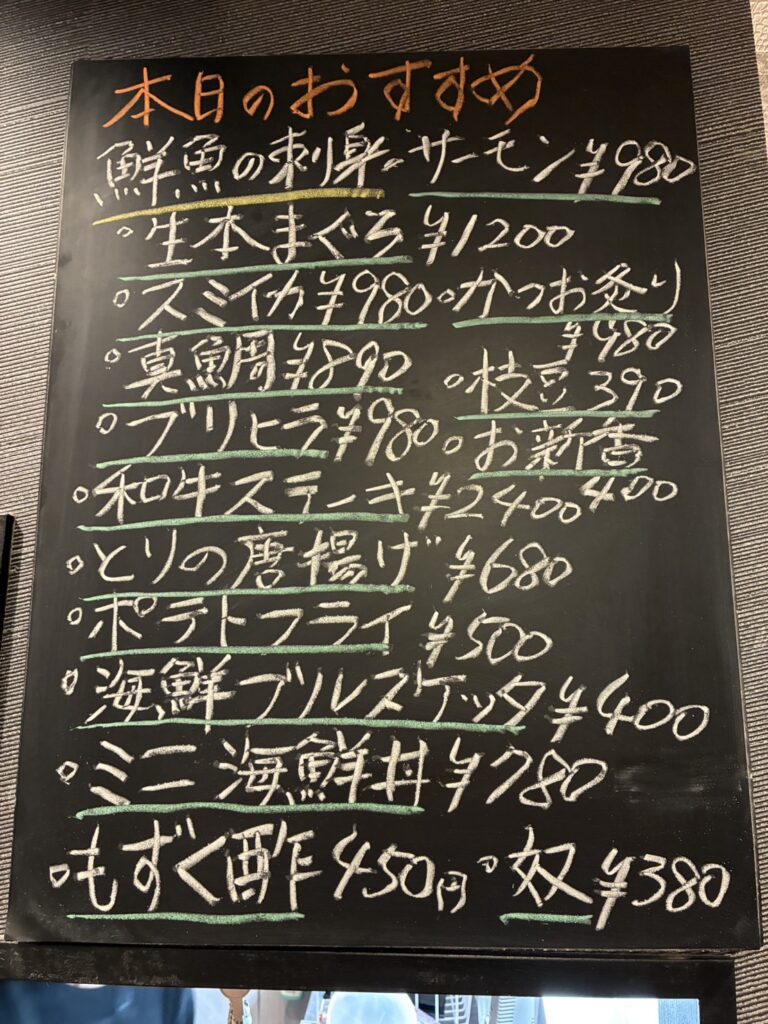 本日のおすすめ
鮮魚の刺身。サーモン¥980
。生本まぐろ¥1200
。スミイカ¥980 。かつお炙り
¥980
。真鯛¥890 。枝豆390
。ブリヒラ¥980 。お新香
400
。和牛ステーキ¥2400
。とりの唐揚げ ¥680
。ポテトフライ ¥500
。海鮮ブルスケッタ¥400
。ミニ海鮮丼¥780
。もずく酢450円 。奴¥380